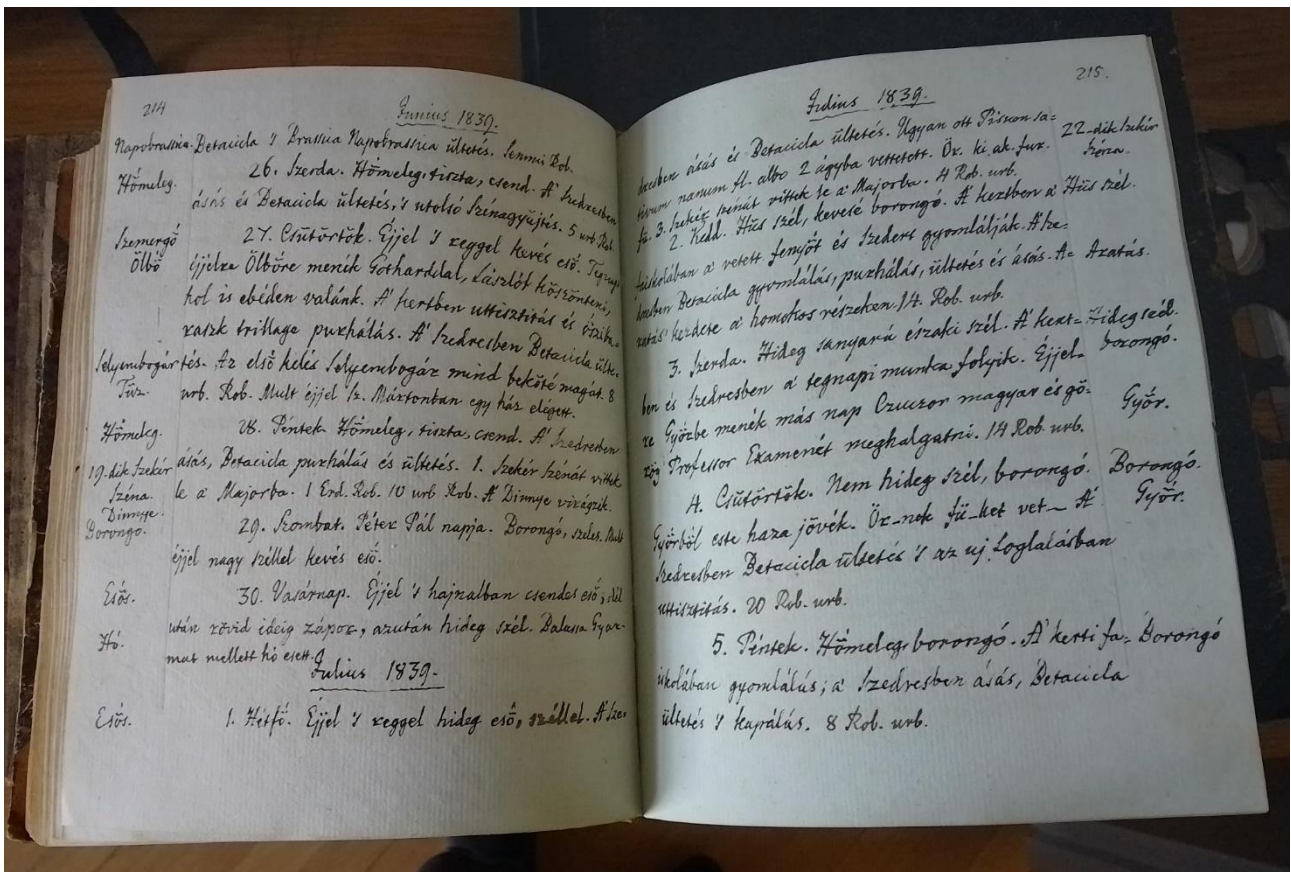 214
Junius 1839.
Napobrassica. Betacicla 's Brassica Napobrassica ültetés. Semmi Rob.
Hőmeleg. 26. Szerda. Hőmeleg, tiszta, csend. A' Szedresben
ásás és Betacicla ültetés, 's utolsó Szénagyüjtés. 5 urb. Rob.
Szemergő 27. Csütörtök. Éjjel 's reggel kevés eső. Tegnap
Ölbő éjjelre Ölbőre menék Gotharddal, Lászlót köszönteni,
hol is ebéden valánk. A' kertben uttisztitás és
raszk trillage purhálás. A' Szedresben Betacicla ülte-
Selyembogár tés. Az első kelés Selyembogár mind beköté magát. 8
Tüz. urb. Rob. Mult éjjel Sz. Mártonban egy ház elégett.
Hőmeleg. 28. Péntek. Hőmeleg, tiszta, csend. A' Szedresben
19-dik Szekér ásás, Betacicla purhálás és ültetés. 1. Szekér Szénát vittek
Széna. le a' Majorba. 1 Erd. Rob. 10 urb Rob. A' Dinnye virágzik.
Dinnye.
Borongo. 29. Szombat. Péter Pál napja. Borongó, szeles. Mult
éjjel nagy széllel kevés eső.
Esős. 30. Vasárnap. Éjjel 's hajnalban csendes eső; dél
után rövid ideig zápor, azután hideg szél. Balassa Gyar-
Hó. mat mellett hó esett.
Julius 1839.
Esős. 1. Hétfő. Éjjel 's reggel hideg eső, széllel. A' Sze-
215.
Julius 1839.
dresben ásás és Betacicla ültetés. Ugyan ott Pisum sa- 22-dik Szekér
tivum nanum fl. albo 2 ágyba vettetett. Ör. ki ak. fur. Széna.
fü. 3. Szekér szénát vittek le a' Majorba. 4 Rob. urb.
2. Kedd. Hüs szél, kevesé borongó. A' kertben a' Hüs szél.
faiskolában a' vetett fenyőt és Szedert gyomlálják. A' Sze-
dresben Betacicla gyomlálás, purhálás, ültetés és ásás. A= Aratás.
ratás' kezdete a' homokos részeken. 14. Rob. urb.
3. Szerda. Hideg sanyarú északi szél. A' kert= Hideg szél.
ben és Szedresben a' tegnapi munka folyik. Éjjel= borongó.
re Győrbe menék más nap Czuczor magyar és gö= Győr.
rög Professor Examenét meghalgatni. 14 Rob. urb.
4. Csütörtök. Nem hideg szél, borongó. Borongó.
Győrböl este haza jövék. Ör_nek fü_ket vet_ A' Győr.
Szedresben Betacicla ültetés 's az uj foglalásban
uttisztitás. 20 Rob. urb.
5. Péntek. Hőmeleg, borongó. A' kerti fa= Borongó
iskolában gyomlálás; a' Szedresben ásás, Betacicla
ültetés 's kapálás. 8 Rob. urb.